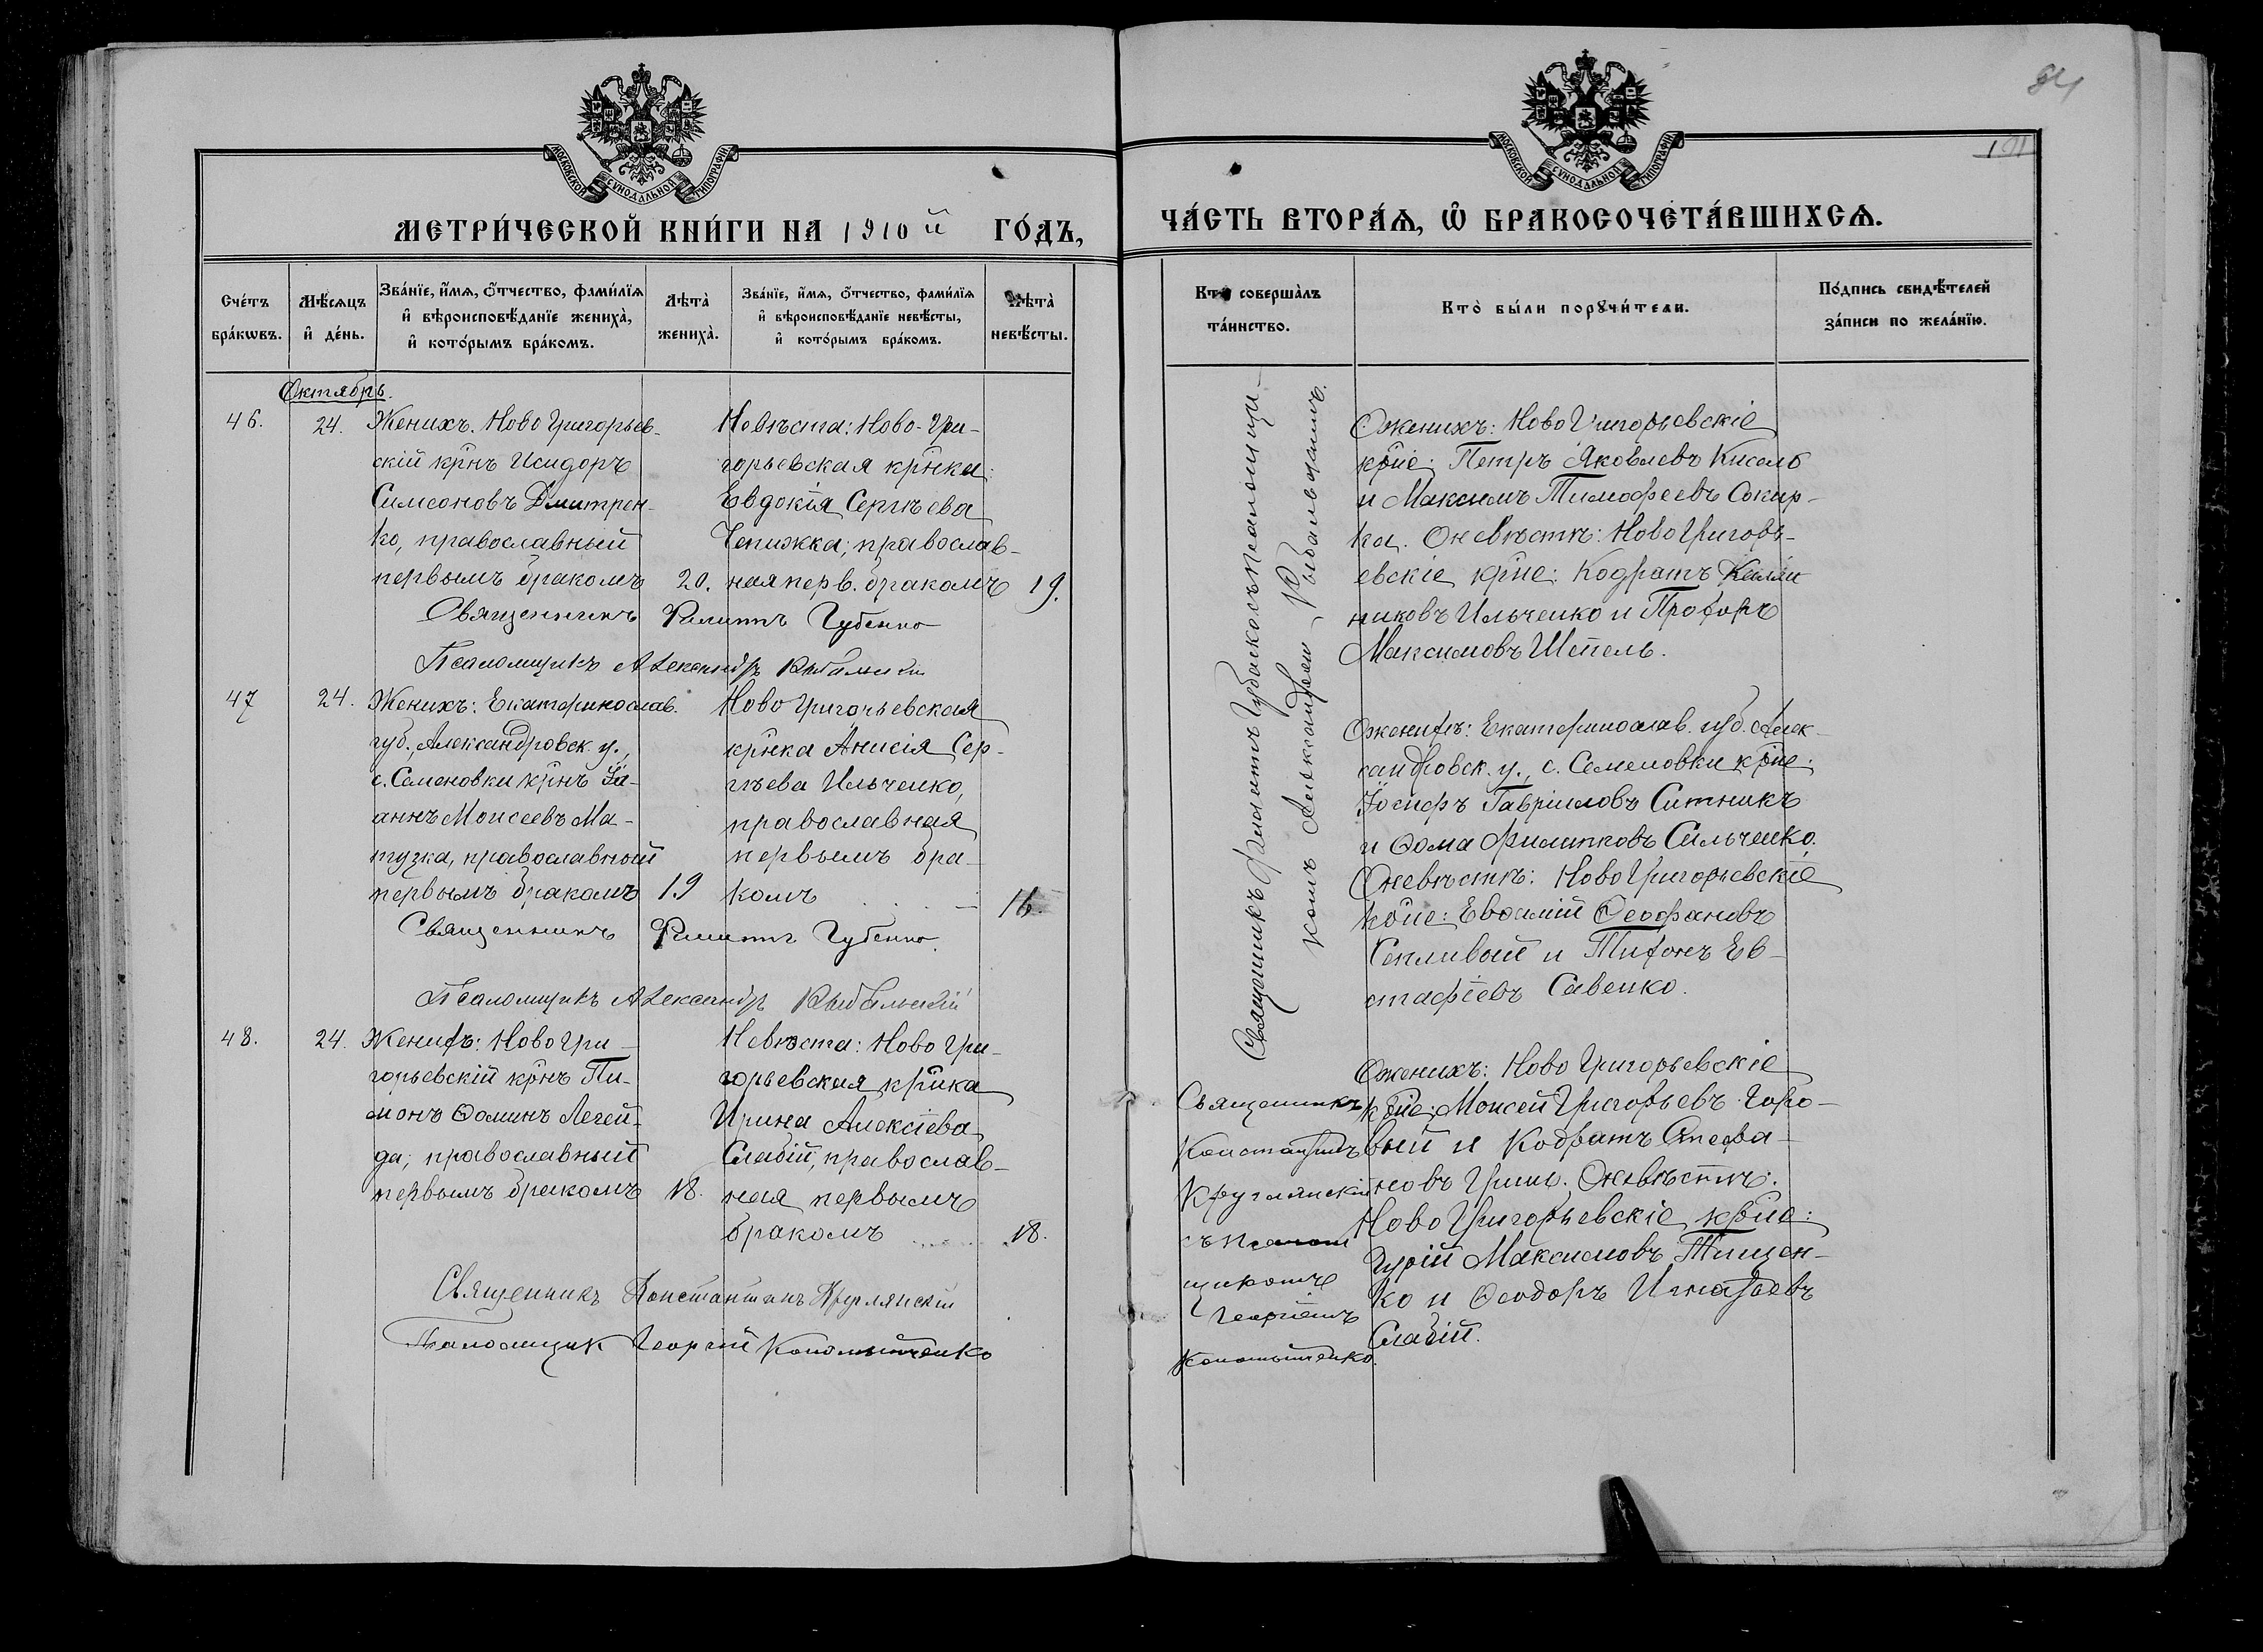 МОСКОВСКОЙ СѴНОДАЛЬНОЙ ТИПОГРАФІИ
МЕТРИ́ЧЕСКОЙ КНИ́ГИ НА 1910й ГО́ДЪ,
Сче́тъ бра́кѡвъ.
Мѣ́сяцъ и҆ де́нь.
Зва́нїе, и҆́мѧ, ѻ҆́тчество, фами́лїѧ
и҆ вѣроисповѣ́данїе жениха̀,
и҆ кото́рымъ бра́комъ.
Лѣ́та̀ жениха̀.
Зва́нїе, и҆́мѧ, ѻ҆́тчество, фами́лїѧ
и҆ вѣроисповѣ́данїе невѣ́сты,
и҆ кото́рымъ бра́комъ.
Лѣ́та̀ невѣ́сты.
Октябрь.
46. 24. Женихъ. Ново Григорьев-
скій крнъ Исидоръ
Симеоновъ Дмитрен-
ко, православный
первымъ бракомъ 20.
Невѣста: Ново-Гри-
горьевская крнка:
Евдокія Сергѣева
Чепижка; православ-
ная перв. бракомъ 19.
Священникъ Филиппъ Губенко
Псаломщикъ Александръ Рыбальскій
47 24. Женихъ: Екатеринослав.
губ., Александровск. у.,
с. Семеновки крнъ Іо-
аннъ Моисеевъ Ма-
тузка, православный
первымъ бракомъ 19
Ново Григорьевская
крнка Анисія Сер-
гѣева Ильченко,
православная
первымъ бра-
комъ 16.
Священникъ Филиппъ Губенко.
Псаломщикъ Александръ Рыбальскій
48. 24. Женихъ: Ново Гри-
горьевскій крнъ Пи-
монъ Ѳоминъ Легей-
да; православный
первымъ бракомъ 18.
Невѣста: Ново Гри-
горьевская крнка
Ирина Алексіева
Слабій, православ-
ная первымъ
бракомъ 18.
Священникъ Константинъ Круглянскій
Псаломщик Георгій Кономытченко
84
101
МОСКОВСКОЙ СѴНОДАЛЬНОЙ ТИПОГРАФІИ
ЧА́СТЬ ВТОРА́Ѧ, Ѡ҆ БРАКОСОЧЕТА́ВШИХСѦ.
Кто̀ соверша̀лъ та́инство.
Кто̀ бы́ли порꙋчи́тели.
По́дпись свидѣ́телей
за́писи по жела́нїю.
Священникъ Филиппъ Губа съ псаломщи-
комъ Александромъ Рыбальчакомъ.
Ѡ женихѣ: Ново Григорьевскіе
крне: Петръ Яковлевъ Кисель
и Максимъ Тимофеевъ Сокир-
ка. О невѣстѣ: Ново Григорь-
евскіе крне: Кодратъ
никовъ Ильченко и Прохоръ
Максимовъ Шепель.
О женихѣ: Екатеринослав. губ. Алек-
сандровск. у., с. Семеновки крне:
Іосифъ Гавріиловъ Ситникъ
и Ѳома Филипповъ Сильченко.
О невѣстѣ: Ново Григорьевскіе
крне: Евѳимій Ѳеофановъ
Сопливый и Тихонъ Ев-
стафіевъ Савенко.
Священникъ
Константинъ
Круглянскій
съ псалом
щикомъ
Георгіемъ
Кономытченко.
О женихѣ: Ново Григорьевскіе
крне: Моисей Григорьевъ Горо-
вый и Кодратъ Стефа-
новъ Гринь. О невѣстѣ:
Ново Григорьевскіе крне:
Гурій Максимовъ Тищен-
ко и Ѳеодоръ Игнатьевъ
Слабій.